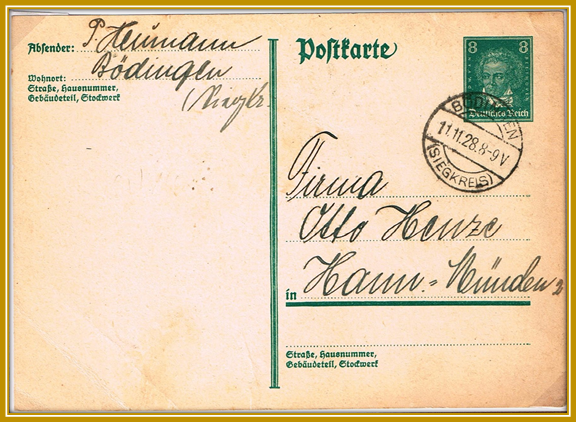 Absender: P. Heumann
Wohnort: Bödingen
Straße, Hausnummer,
Gebäudeteil, Stockwerk
(Siegkr.
Postkarte
8 8
Deutsches Reich
BÖDINGEN
11.11.28.8-9V
(SIEGKREIS)
Firma
Otto Henze
in Hann.=Münden
Straße, Hausnummer,
Gebäudeteil, Stockwerk